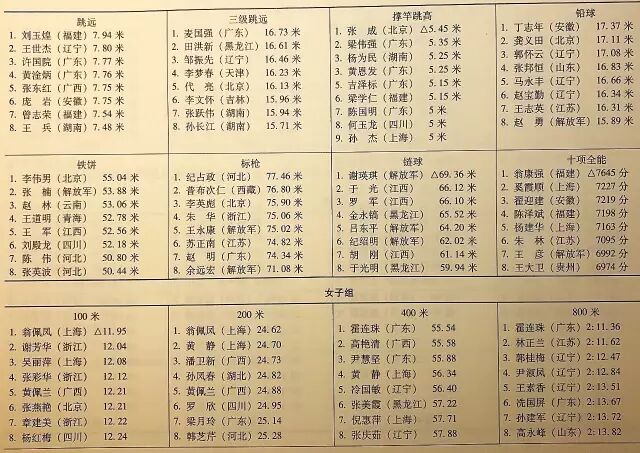 跳远
1. 刘玉煌（福建）7.94 米
2. 王世杰（辽宁）7.80 米
3. 许国院（广东）7.77 米
4. 黄淦炳（广东）7.76 米
5. 张东红（广西）7.75 米
6. 庞 岩（安徽）7.75 米
7. 曾志荣（福建）7.54 米
8. 王 兵（湖南）7.48 米
三级跳远
1. 麦国强（广东） 16.73 米
2. 田洪新（黑龙江）16.61 米
3. 邹振先（辽宁） 16.46 米
4. 李梦春（天津） 16.23 米
5. 代 亮（北京） 16.13 米
6. 李文怀（吉林） 15.96 米
7. 张跃伟（湖南） 15.94 米
8. 孙长江（湖南） 15.71 米
撑竿跳高
1. 张 成（北京）△5.45 米
2. 梁伟强（广东） 5.35 米
3. 杨为民（湖南） 5.25 米
4. 黄恩发（广东） 5.25 米
5. 吉泽标（广东） 5.15 米
6. 梁学仁（福建） 5.15 米
7. 陈国明（广东） 5 米
8. 何玉龙（四川） 5 米
9. 孙 杰（上海） 5 米
铅球
1. 丁志年（安徽） 17.37 米
2. 龚义田（北京） 17.11 米
3. 郭怀云（辽宁） 17.08 米
4. 张邦恒（山东） 16.83 米
5. 马永丰（山西） 16.66 米
6. 赵宝勤（山东） 16.34 米
7. 王志英（江苏） 16.31 米
8. 赵 勇（解放军）15.89 米
铁饼
1. 李伟男（北京） 55.04 米
2. 张 楠（解放军）53.88 米
3. 赵 林（云南） 53.06 米
4. 王道明（青海） 52.78 米
5. 王 军（江西） 52.56 米
6. 刘殿龙（四川） 52.18 米
7. 陈 伟（河北） 50.80 米
8. 张英波（河北） 50.44 米
标枪
1. 纪占政（河北） 77.46 米
2. 普布次仁（西藏）76.80 米
3. 李英彪（北京） 75.90 米
4. 朱 华（浙江） 75.06 米
5. 王永康（解放军）75.02 米
6. 苏正南（江苏） 74.82 米
7. 赵 明（广东） 74.34 米
8. 余远宏（解放军）71.08 米
链球
1. 谢瑛琪（解放军）△69.36 米
2. 于 光（江西） 66.12 米
3. 罗 军（江西） 66.10 米
4. 金永镐（黑龙江） 65.52 米
5. 吕东平（解放军） 64.20 米
6. 纪绍明（解放军） 62.02 米
7. 胡 刚（江西） 61.14 米
8. 于光明（黑龙江） 59.94 米
十项全能
1. 翁康强（福建）△7645 分
2. 奚霞顺（上海） 7227 分
3. 翟迎建（安徽） 7219 分
4. 陈泽斌（福建） 7198 分
5. 杨建华（上海） 7163 分
6. 朱 林（江苏） 7095 分
7. 王 彦（解放军）6992 分
8. 王大卫（贵州） 6974 分
女子组
100 米
1. 翁佩凤（上海）△11.95
2. 谢芳华（浙江） 12.04
3. 吴丽萍（上海） 12.08
4. 张彩华（浙江） 12.12
5. 黄佩兰（广西） 12.21
6. 张燕艳（北京） 12.21
7. 章建美（浙江） 12.22
8. 杨红梅（四川） 12.24
200 米
1. 翁佩凤（上海）24.62
2. 黄 静（上海）24.70
3. 潘卫新（广西）24.73
4. 孙凤春（湖北）24.82
5. 黄佩兰（广西）24.88
6. 罗 欣（四川）24.95
7. 梁月玲（广东）25.14
8. 韩芝芹（河北）25.28
400 米
1. 霍连珠（广东） 55.54
2. 高艳清（广西） 55.58
3. 尹慧坚（广东） 55.88
4. 黄 静（上海） 56.34
5. 冷国敏（辽宁） 56.40
6. 张美霞（黑龙江）57.22
7. 倪惠萍（上海） 57.71
8. 张庆茹（辽宁） 57.88
800 米
1. 霍连珠（广东）2:11.36
2. 林正兰（江苏）2:11.62
3. 郭桂梅（辽宁）2:12.47
4. 尹淑凤（辽宁）2:12.84
5. 王素香（辽宁）2:13.51
6. 冼国屏（广东）2:13.67
7. 孙建军（辽宁）2:13.72
8. 高永峰（山东）2:13.82